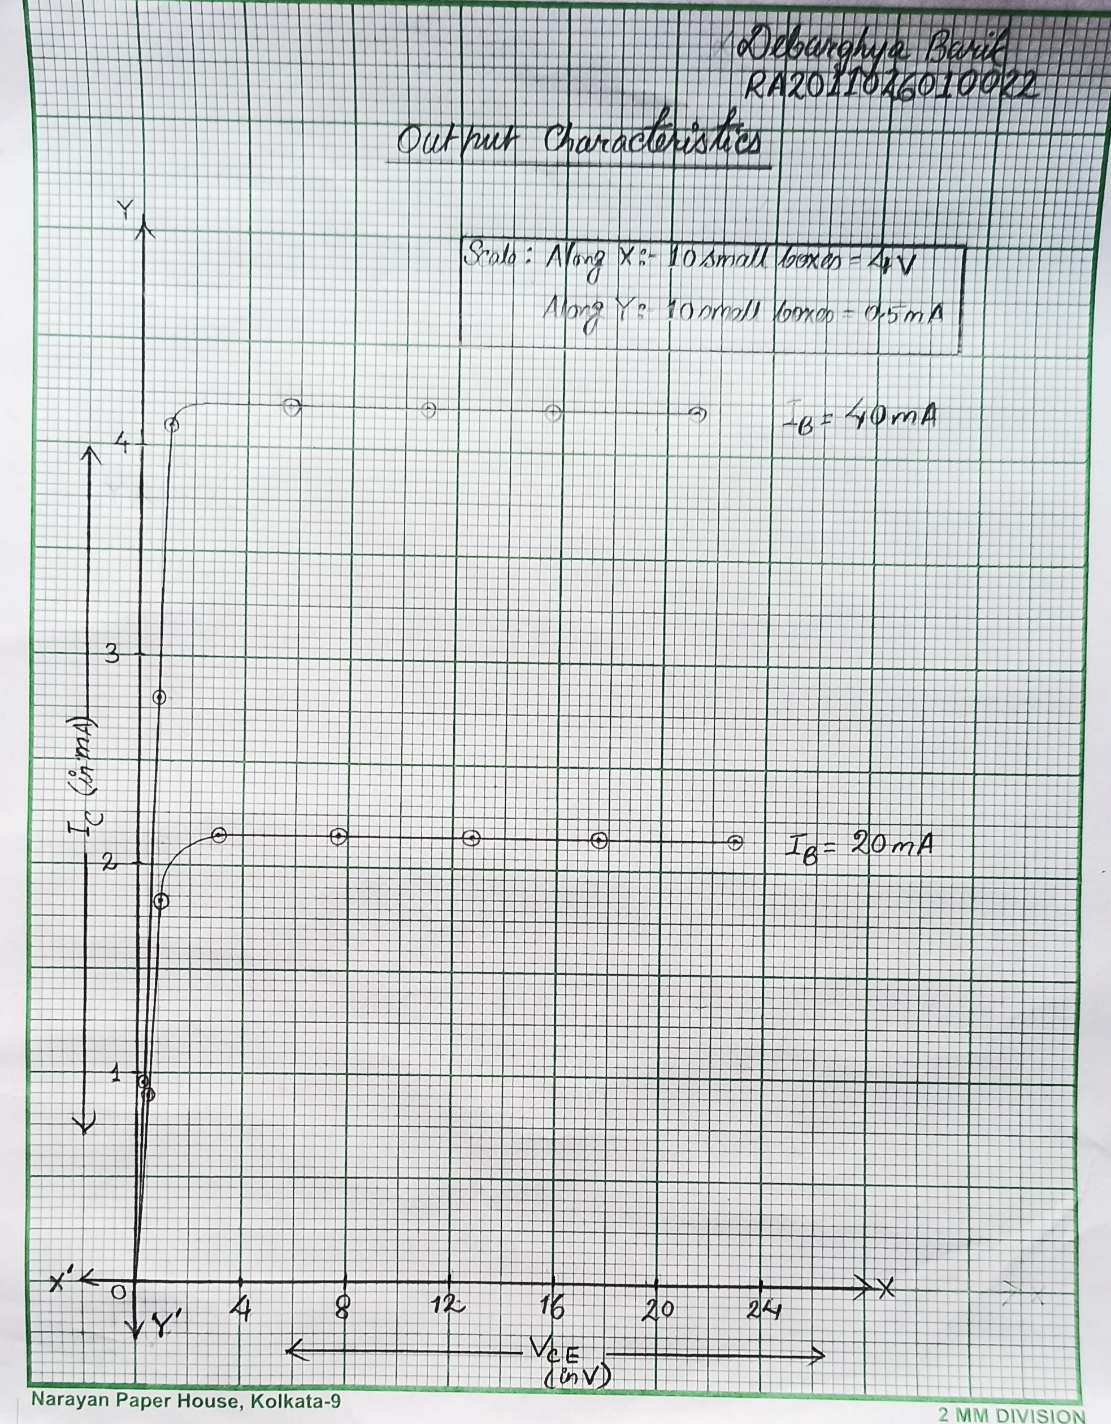 Debarghya Barik
RA2011026010022
Output Characteristics
Y
Scale: Along X:- 10 small boxes = 4V
Along Y: 10 small boxes = 0.5mA
I_B = 40mA
4
3
I_C (in mA)
I_B = 20mA
2
1
X' O X
4 8 12 16 20 24
Y'
V_CE
(in V)
Narayan Paper House, Kolkata-9
2 MM DIVISION